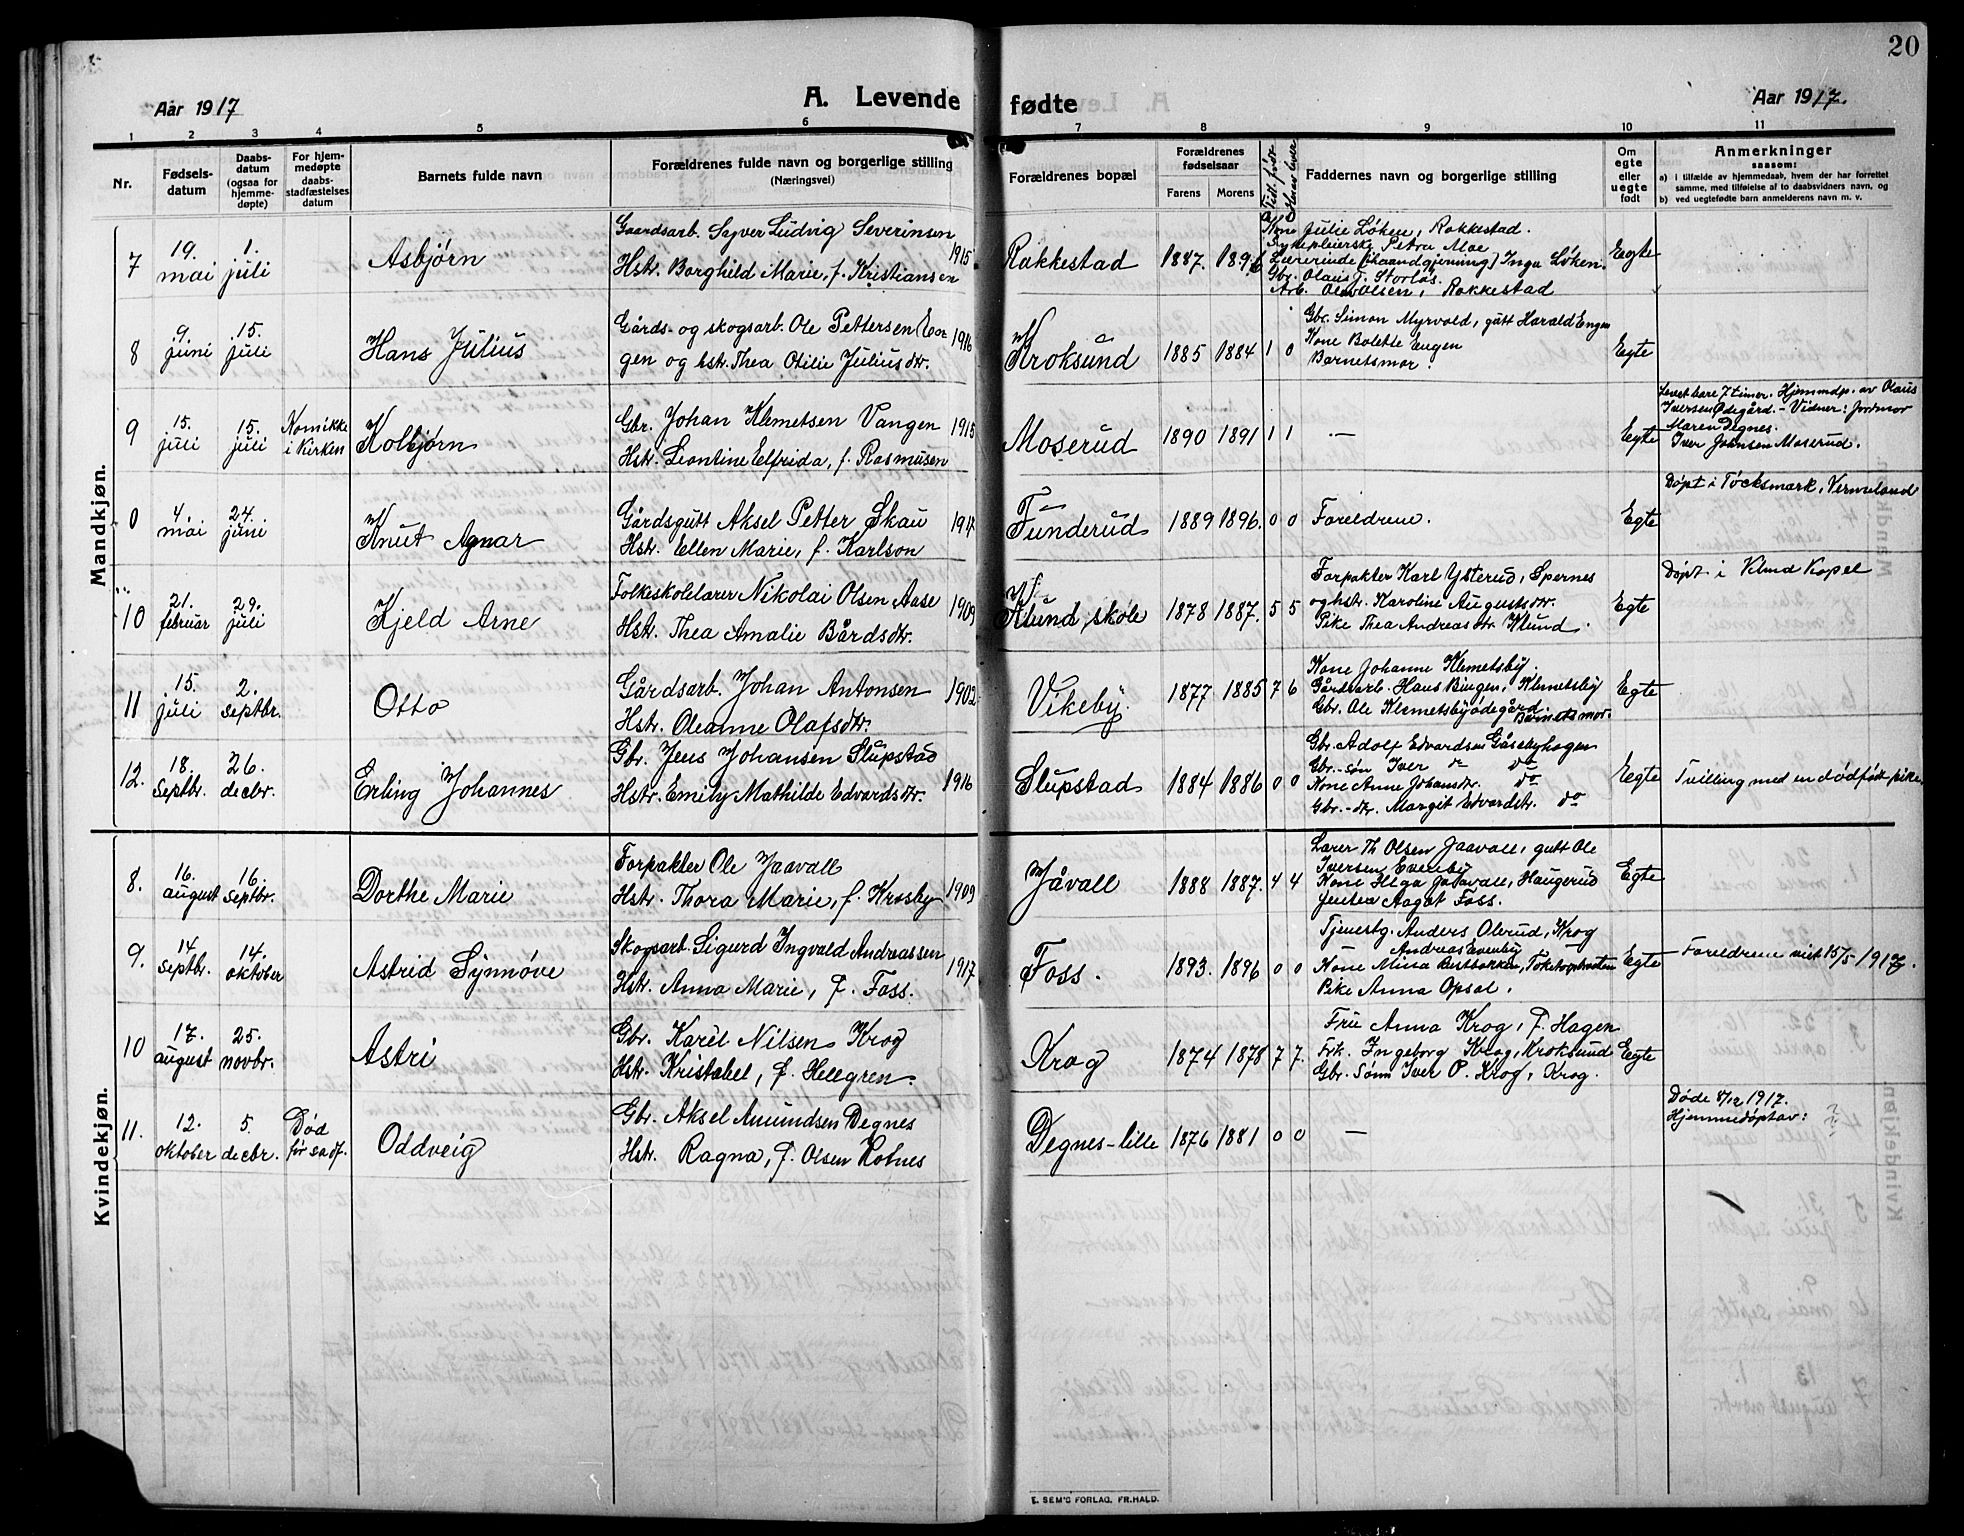 20
Aar 1917
A. Levende
fødte
Aar 1917.
1 2 3 4 5 6 7 8 9 10 11
Nr.
Fødsels-
datum
Daabs-
datum
(ogsaa for
hjemme-
døpte)
For hjem-
medøpte
daabs-
stadfæstelses
datum
Barnets fulde navn
Forældrenes fulde navn og borgerlige stilling
(Næringsvei)
Forældrenes bopæl
Forældrenes
fødselsaar
Farens Morens
Tidl. født
Herav lever
Faddernes navn og borgerlige stilling
Om
egte
eller
uegte
født
Anmerkninger
saasom:
a) i tilfælde av hjemmedaab, hvem der har forrettet
samme, med tilføielse af to daabsvidners navn, og
b) ved uegtefødte barn anmelderens navn m. v.
Mandkjøn.
7
19.
mai
1.
juli
Asbjørn
Gaardsarb. Sigver Ludvig Severinsen
Hstr. Borghild Marie, f. Kristiansen
1915
Rakkestad
1887. 1896
Kone Julie Løken, Rakkestad.
Sykepleierske Petra Moe
Lærerinde (i haandgjerning) Inga Løken.
Gbr. Olaus J. Storløs.
Arb. Olav Olsen, Rakkestad
Egte
8
9.
juni
15.
juli
Hans Julius
Gårds- og skogsarb. Ole Pettersen En-
gen og hstr. Thea Otilie Juliusdtr.
1916
Kroksund
1885 1884 1 0
Gbr. Simon Myrvold, gutt Harald Engen
Kone Bolette Engen
Barnetsmor.
Egte
9
15.
juli
15.
juli
Kom ikke
i Kirken
Kolbjørn
Gbr. Johan Klemetsen Vangen
Hstr. Leontine Elfrida, f. Rasmusen
1915
Moserud
1890 1891 1 1
—
Egte
Levet bare 7 timer. Hjemmdp. av Olaus
Iversen Ødegård. - Vidner: Jordmor
Maren Degnes.
Iver Johnsen Moserud.
0
4
mai
24.
juni
Knut Agnar
Gårdsgutt Aksel Petter Skau
Hstr. Ellen Marie, f. Karlson
1914
Tunderud
1889 1896. 0 0
Foreldrene.
Egte
Døpt i Töcksmark, Vermeland
10
21.
februar
29.
juli
Kjeld Arne
Folkeskolelærer Nikolai Olsen Aase
Hstr. Thea Amalie Bårdsdtr.
1909
Klund skole
1878 1887. 5 5
Forpakter Karl Ysterud, Spernes
og hst. Karoline Augustsdtr.
Pike Thea Andreasdtr Klund.
Egte
Døpt i Klund Kapel
11
15.
juli
2.
Septbr.
Otto
Gårdsarb. Johan Antonsen
Hstr. Oleanne Olafsdtr.
1902
Vikeby.
1877 1885 7 6
Kone Johanne Klemetsby.
Gårdsarb. Hans Bingen, Klemetsby
Gbr. Ole Klemetsbyødegård.
Barnetsmor.
Egte
12.
18.
Septbr.
26.
decbr.
Erling Johannes
Gbr. Jens Johansen Slupstad
Hstr. Emily Mathilde Edvardsdtr.
1916
Slupstad
1884 1886 0 0
Gbr. Adolf Edvardsen Gåsebyhagen
Gbr.-søn Iver do
Kone Anne Johansdtr. do
Gbr.-dtr. Margit Edvardstr. do
Egte
Tvilling med en dødfødt pike.
Kvindekjøn.
8.
16.
august
16.
septbr.
Dorthe Marie
Forpakter Ole Jaavall
Hstr. Thora Marie, f. Krosby
1909
Jåvall
1888 1887. 4 4
Lærer Th Olsen Jaavall, gutt Ole
Iversen Evenby
Kone Helga Jaavall, Haugerud
Jenten Aagot Foss.
Egte
9.
14
septbr.
14.
oktober
Astrid Synnøve
Skogsarb. Sigurd Ingvald Andreassen
Hstr. Anna Marie, f. Foss.
1917
Foss.
1893. 1896 0 0
Tjenestg. Anders Olerud, Krog
Andreas Evenby
Kone Mina
Pike Anna Opsal.
Egte
Foreldrene viet 15/5 1917.
10
17.
august
25.
novbr.
Astri
Gbr. Karel Nilsen Krog
Hstr. Kristabel, f. Hellgren.
Krog
1874 1878 7 7.
Fru Anna Krog, f. Hagen
Frk. Ingeborg Krog, Kroksund
Gbr. sønn Iver P. Krog, Krog.
Egte
11.
12.
oktober
5.
decbr.
Død
før sadf.
Oddveig
Gbr. Aksel Amundsen Degnes
Hstr. Ragna, f. Olsen Kotnes
Degnes-lille
1876 1881 0 0
—
Døde 8/12 1917.
Hjemmedøpt av: ?
E. SEM'S FORLAG, FR.HALD.